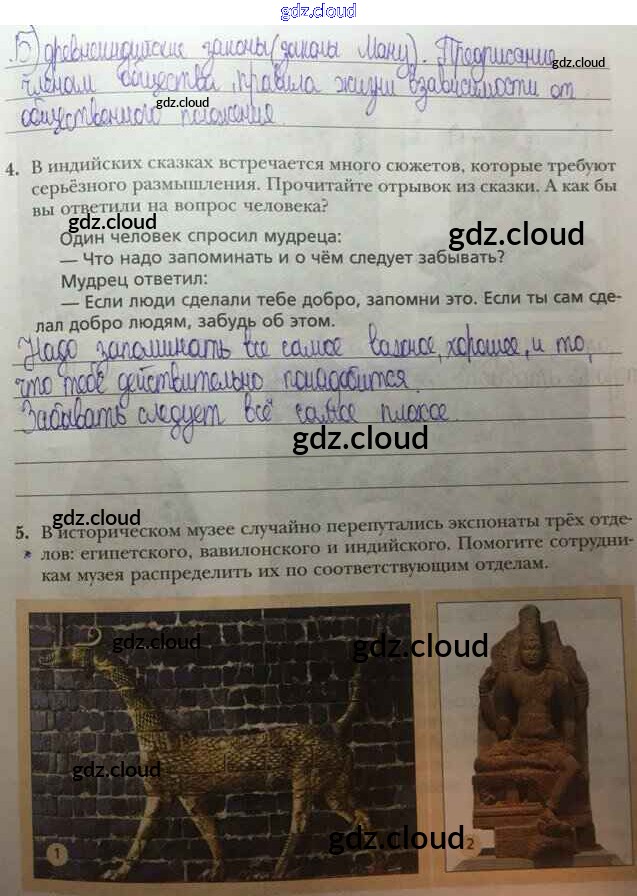 gdz.cloud
Б) древнеиндийские законы (законы Ману). Предписание
членам общества правила жизни взависимости от
gdz.cloud
gdz.cloud
общественного положения
4. В индийских сказках встречается много сюжетов, которые требуют
серьёзного размышления. Прочитайте отрывок из сказки. А как бы
вы ответили на вопрос человека?
gdz.cloud
Один человек спросил мудреца:
gdz.cloud
— Что надо запоминать и о чём следует забывать?
Мудрец ответил:
— Если люди сделали тебе добро, запомни это. Если ты сам сде-
лал добро людям, забудь об этом.
Надо запоминать все самое важное, хорошее, и то,
что тебе действительно понадобится.
Забывать следует всё самое плохое
gdz.cloud
gdz.cloud
5. В историческом музее случайно перепутались экспонаты трёх отде-
* лов: египетского, вавилонского и индийского. Помогите сотрудни-
кам музея распределить их по соответствующим отделам.
gdz.cloud
gdz.cloud
gdz.cloud
gdz.cloud
1
2